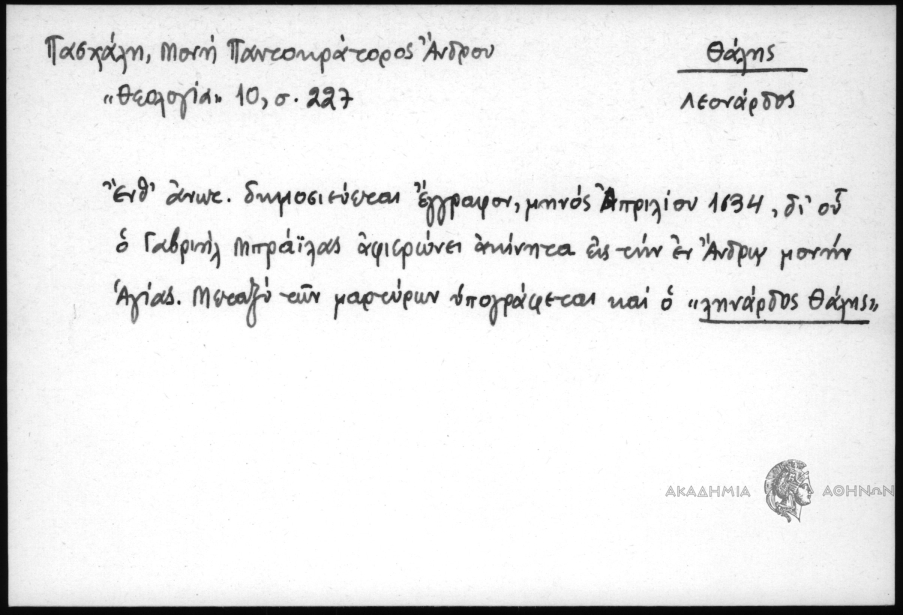 Πασχάλη, Μονή Παντοκράτορος Ἄνδρου
Θάλης
«Θεολογία» 10, σ. 227
Λεονάρδος
Ἔνθ' ἀνωτ. δημοσιεύεται ἔγγραφον, μηνός Ἀπριλίου 1634, δι' οὗ
ὁ Γαβριήλ Μπράϊλας ἀφιερώνει ἀκίνητα εἰς τήν ἐν Ἄνδρῳ μονήν
Ἁγίας. Μεταξύ τῶν μαρτύρων ὑπογράφεται καί ὁ «ληνάρδος Θάλης»
ΑΚΑΔΗΜΙΑ ΑΘΗΝΩΝ